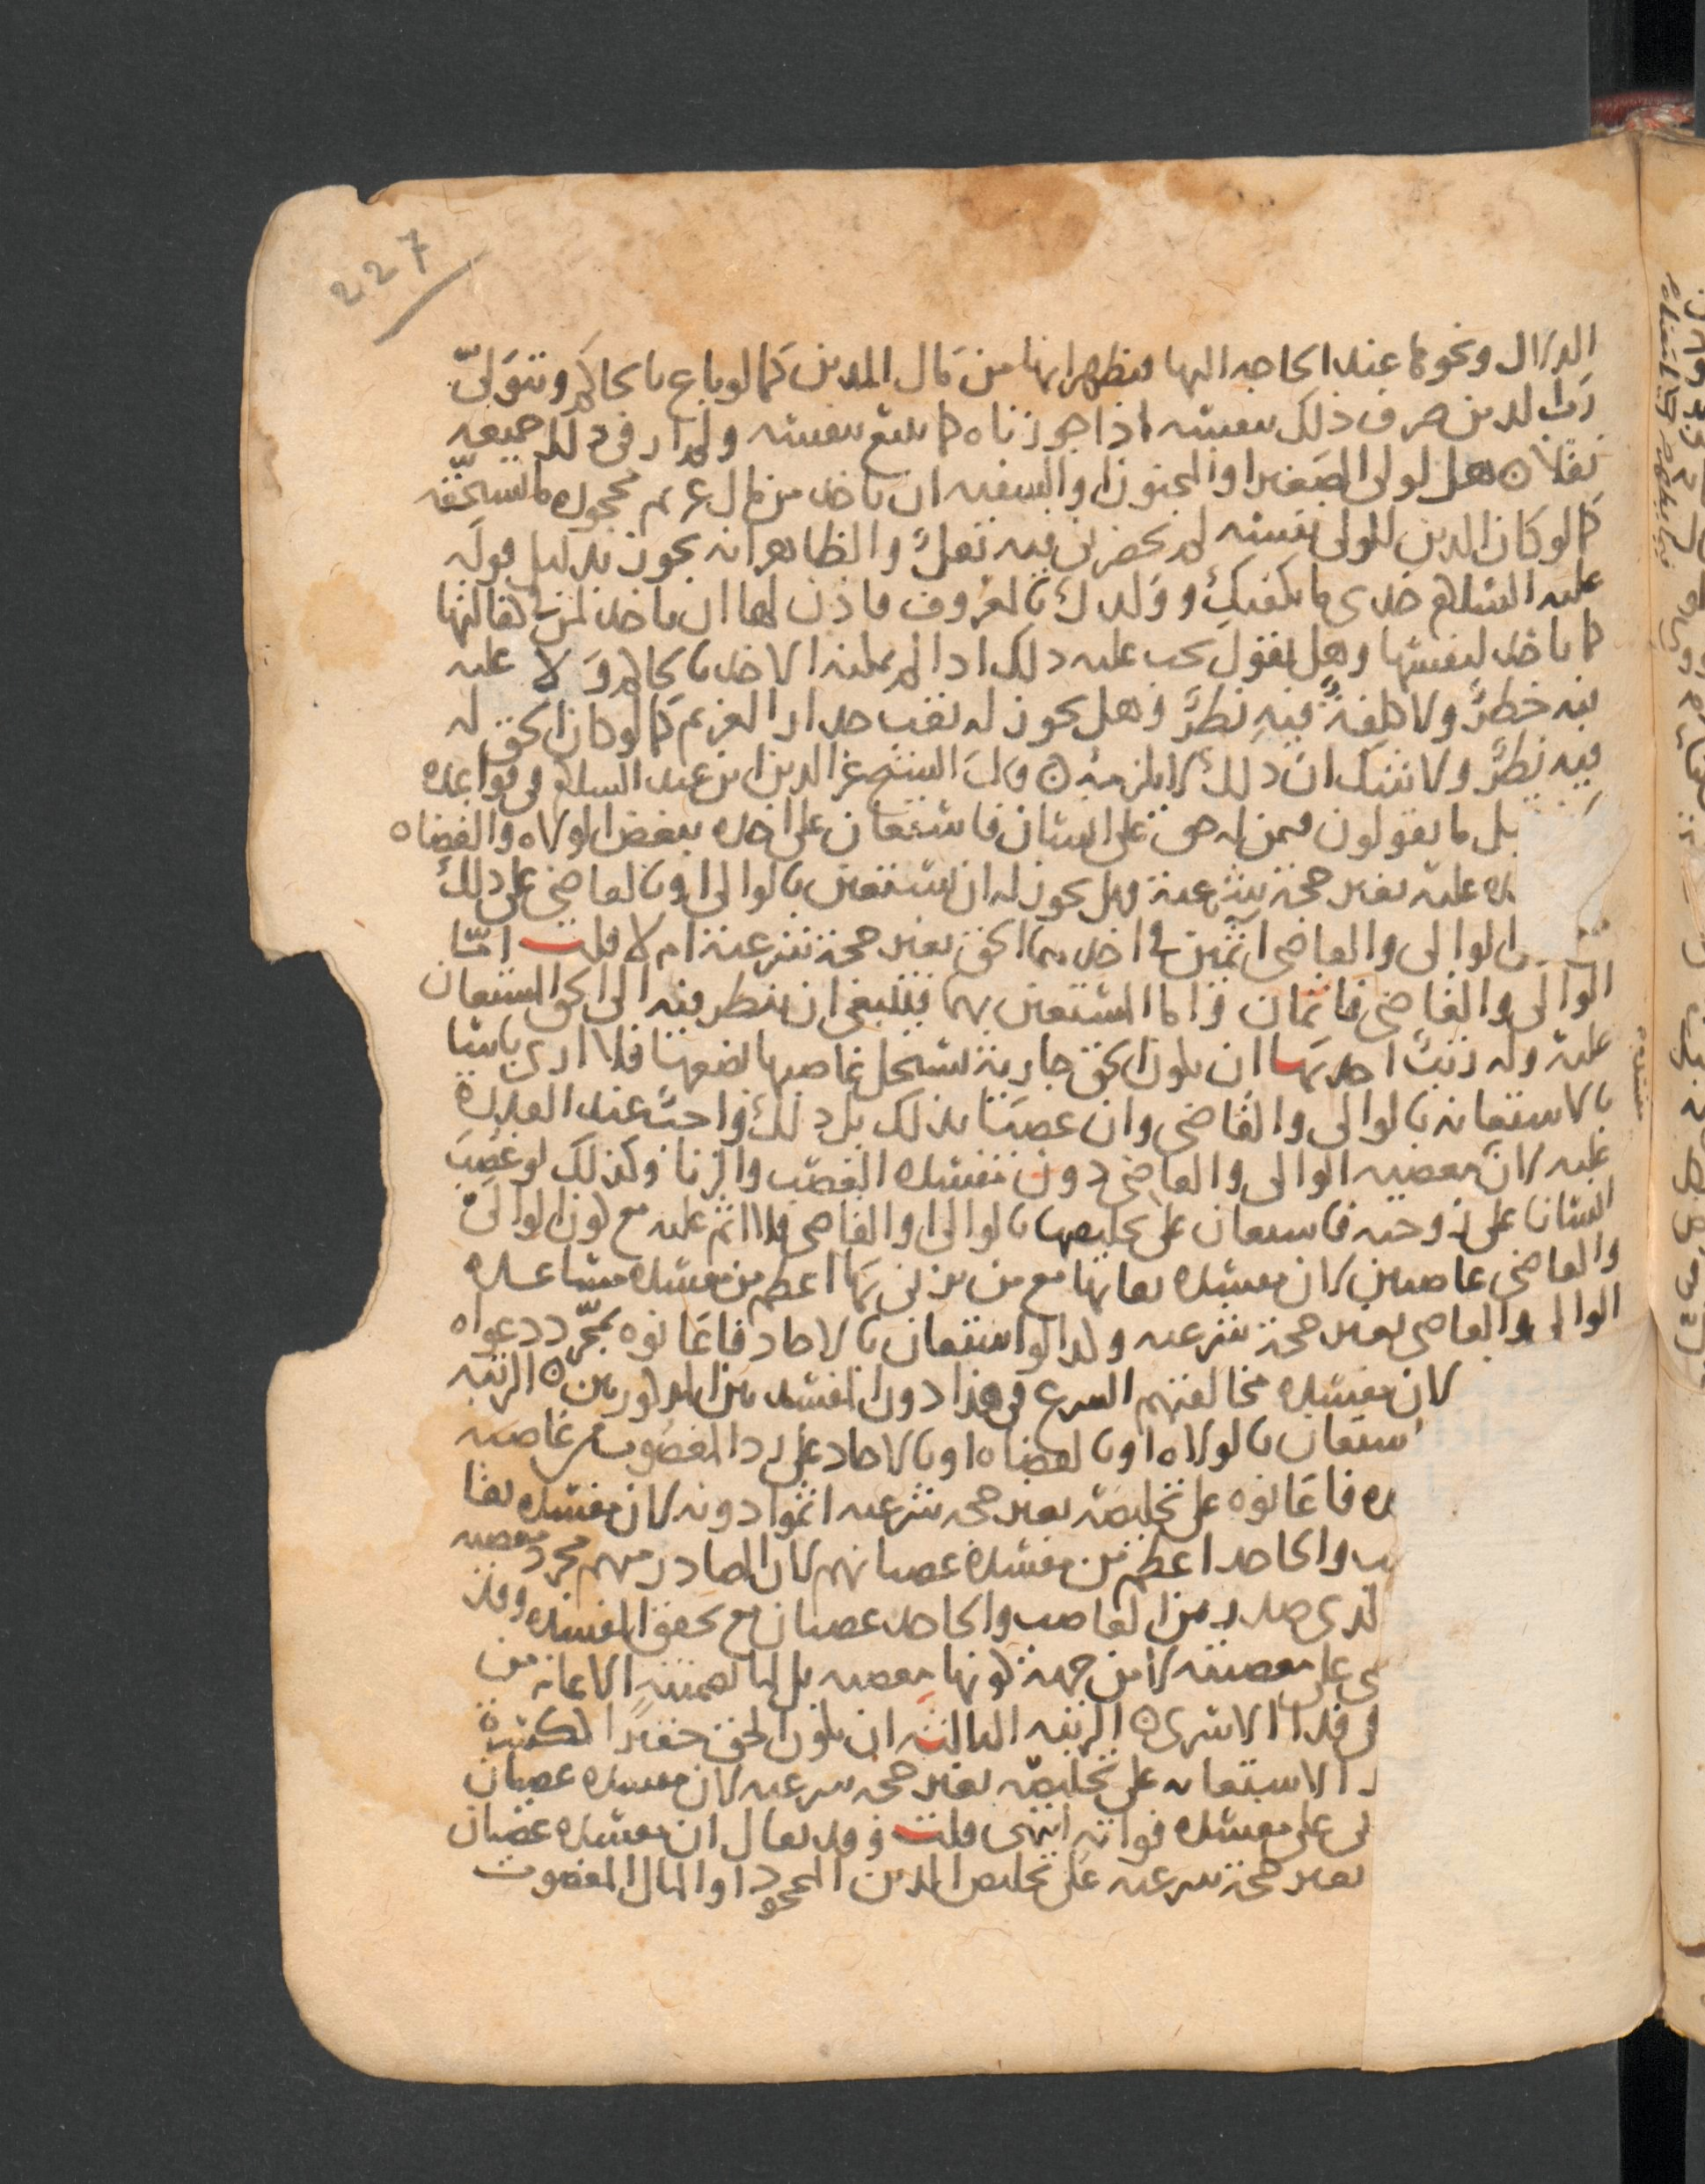 227
الدلال ونحوها عند الحاجه اليها فيظهر انها من مال المدين كما لو باع بالحاكم ويتولى
رب الدين صرف ذلك بنفسه اذا جوزناه كما يبيع بنفسه ولم ار في ذلك جميعه
نقلا ۝ هل لولي الصغير او المجنون او السفيه ان ياخذ من مال غريم محجوره ما يستحقه
كما لو كان الدين للولي نفسه لم يحضرني فيه نقل والظاهر انه يجوز بدليل قوله
عليه السلام خذي ما يكفيك وولدك بالمعروف فاذن لها ان تاخذ لمن في كفالتها
كما تاخذ لنفسها وهل نقول يجب عليه ذلك اذا لم يمكنه الاخذ بالحاكم ولا عليه
فيه خطر ولا كلفة فيه نظر وهل يجوز له نقب جدار الغريم كما لو كان الحق له
فيه نظر ولا شك ان ذلك لا يلزمه ۝ قال الشيخ عز الدين ابن عبد السلام في قواعده
قيل ما تقولون فيمن له حق على انسان فاستعان على اخذه ببعض الولاه والقضاه
عليه بغير حجة شرعية فهل يجوز له ان يستعين بالوالي او بالقاضي على ذلك
الوالي والقاضي اثمين في اخذهما الحق بغير حجة شرعية ام لا قلت اما
الوالي والقاضي فاثمان واما المستعين بهما فينبغي ان ينظر فيه الى الحق المستعان
عليه وله رتب احدها ان يكون الحق جارية يستحل غاصبها بضعها فلا ارى باسا
بالاستعانه بالوالي والقاضي وان عصيا بذلك بل ذلك واجب عند القدرة
عليه لان معصيه الوالي والقاضي دون مفسده الغصب والزنا وكذلك لو غصب
انسانا على زوجته فاستعان على تخليصها بالوالي او القاضي فلا اثم عليه مع كون الوالي
والقاضي عاصيين لان مفسده بقائها مع من يزني بها اعظم من مفسده مساعده
الوالي والقاضي بغير حجة شرعيه ولذا لو استعان بالاحاد فاعانوه بمجرد دعواه
لان مفسده مخالفتهم الشرع في هذا دون المفسدتين المذكورتين ۝ الرتبه
استعان بالولاه او بالقضاه او بالاحاد على رد المغصوب من غاصبه
فاعانوه على تخليصه بغير حجه شرعيه اثموا دونه لان مفسده بقا
والجاحد اعظم من مفسدة عصيانهم لان الصادر منهم مجرد معصيه
الذي صدر من الغاصب والجاحد عصيان مع تحقق المفسده وقد
على معصيته لا من جهة كونها معصيه بل لما تضمنته الاعانه من
فدا الاسرى ۝ الرتبه الثالثه ان يكون الحق حقيرا كسرة
الاستعانه على تخليصه بغير حجه شرعيه لان مفسده عصيان
على مفسده فواته انتهى قلت وقد يقال ان مفسده عصيان
بغير حجة شرعيه على تخليص الدين المجحود او المال المغصوب